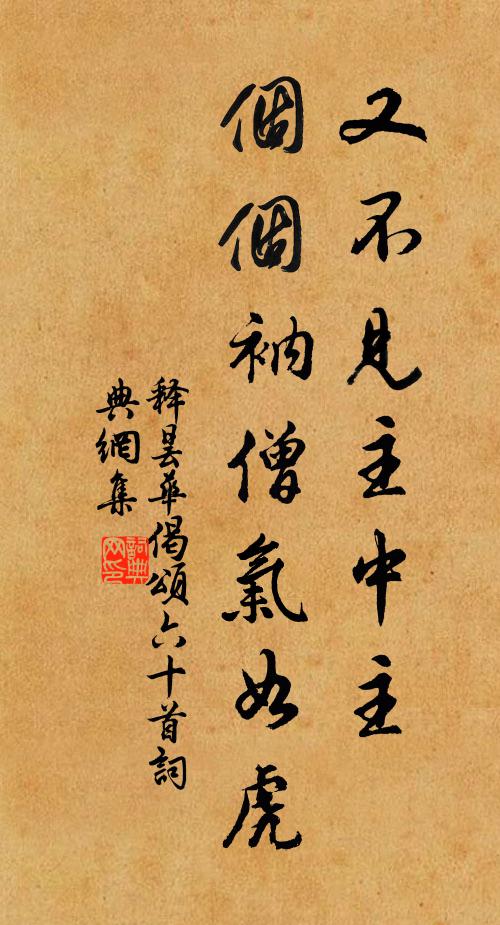 又不見主中主
個個衲僧氣如虎
释曇華偈頌六十首詞
典網集
詞典
网印